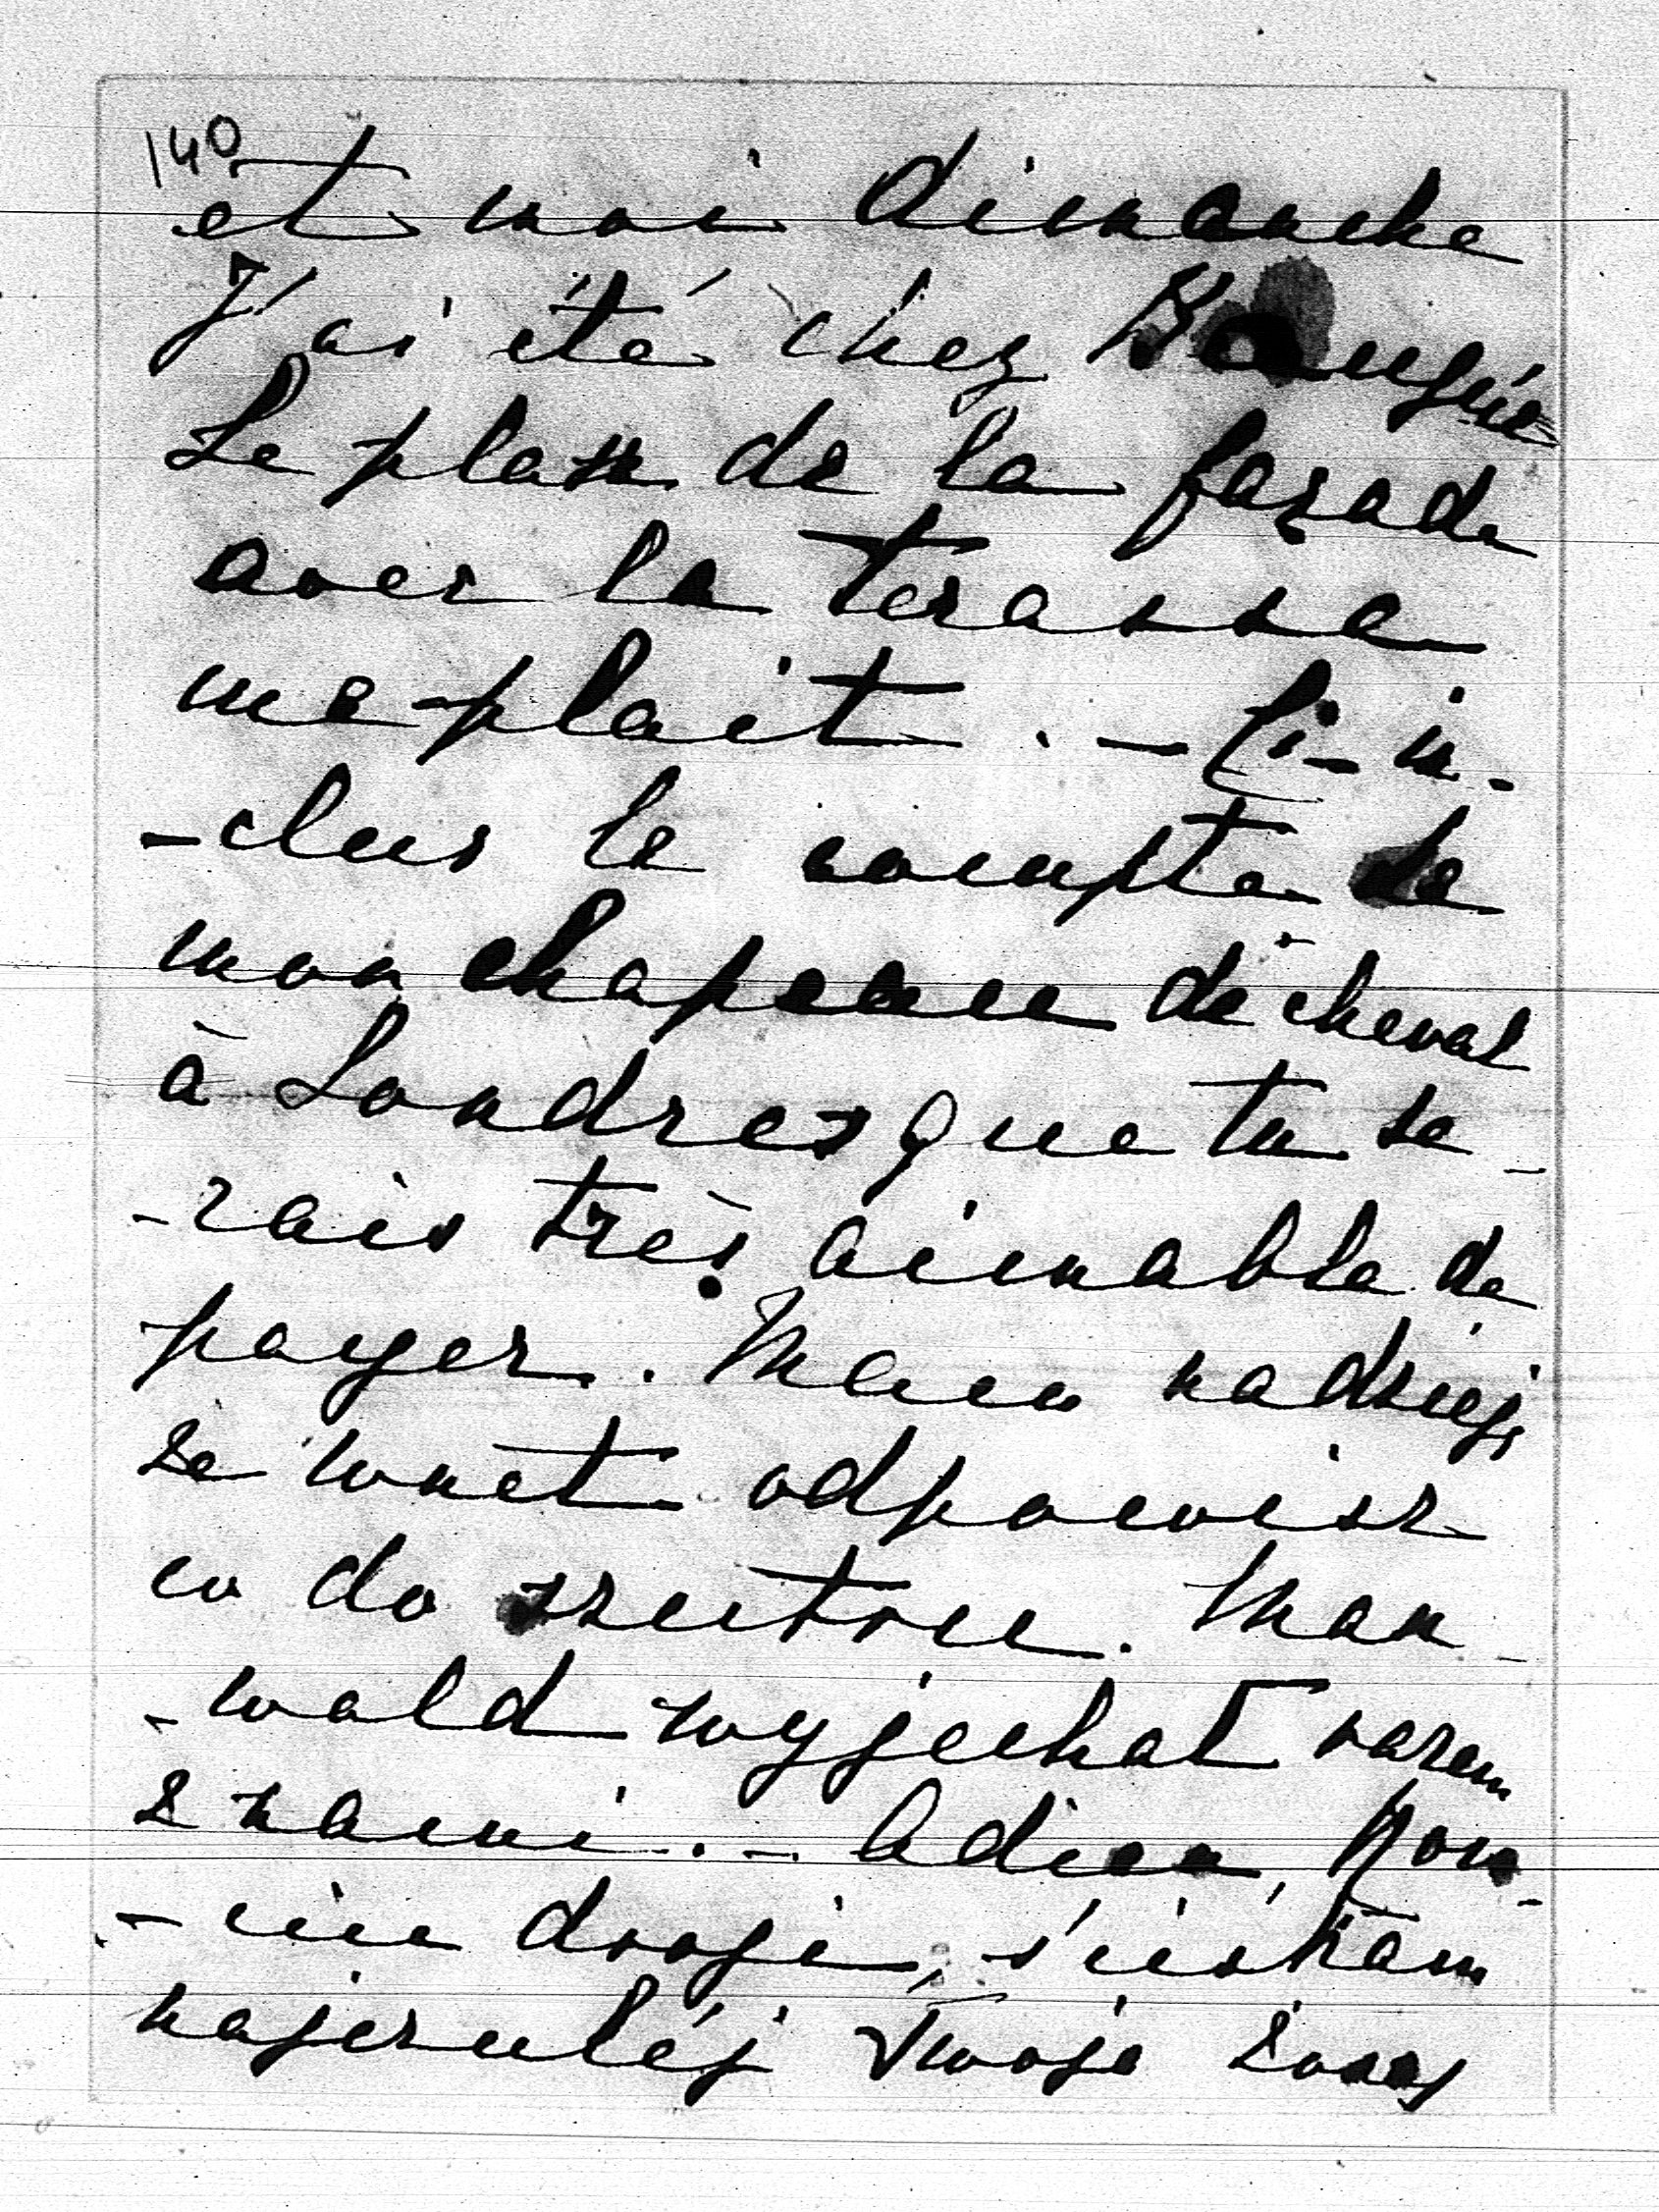 140
et moi dimanche
J'ai été chez
Le plan de la fasade
avec la terasse
me plait. – Ci-in-
-clus le compte de
mon chapeau de cheval
à Londres que tu se-
-rais très aimable de
payer. Mam nadzieję
że wnet odpowisz
co do szeitrou. Man-
-wald wyjechał razem
z nami. – Adieu,
drogi, ściskam
najczulej Twoja żona